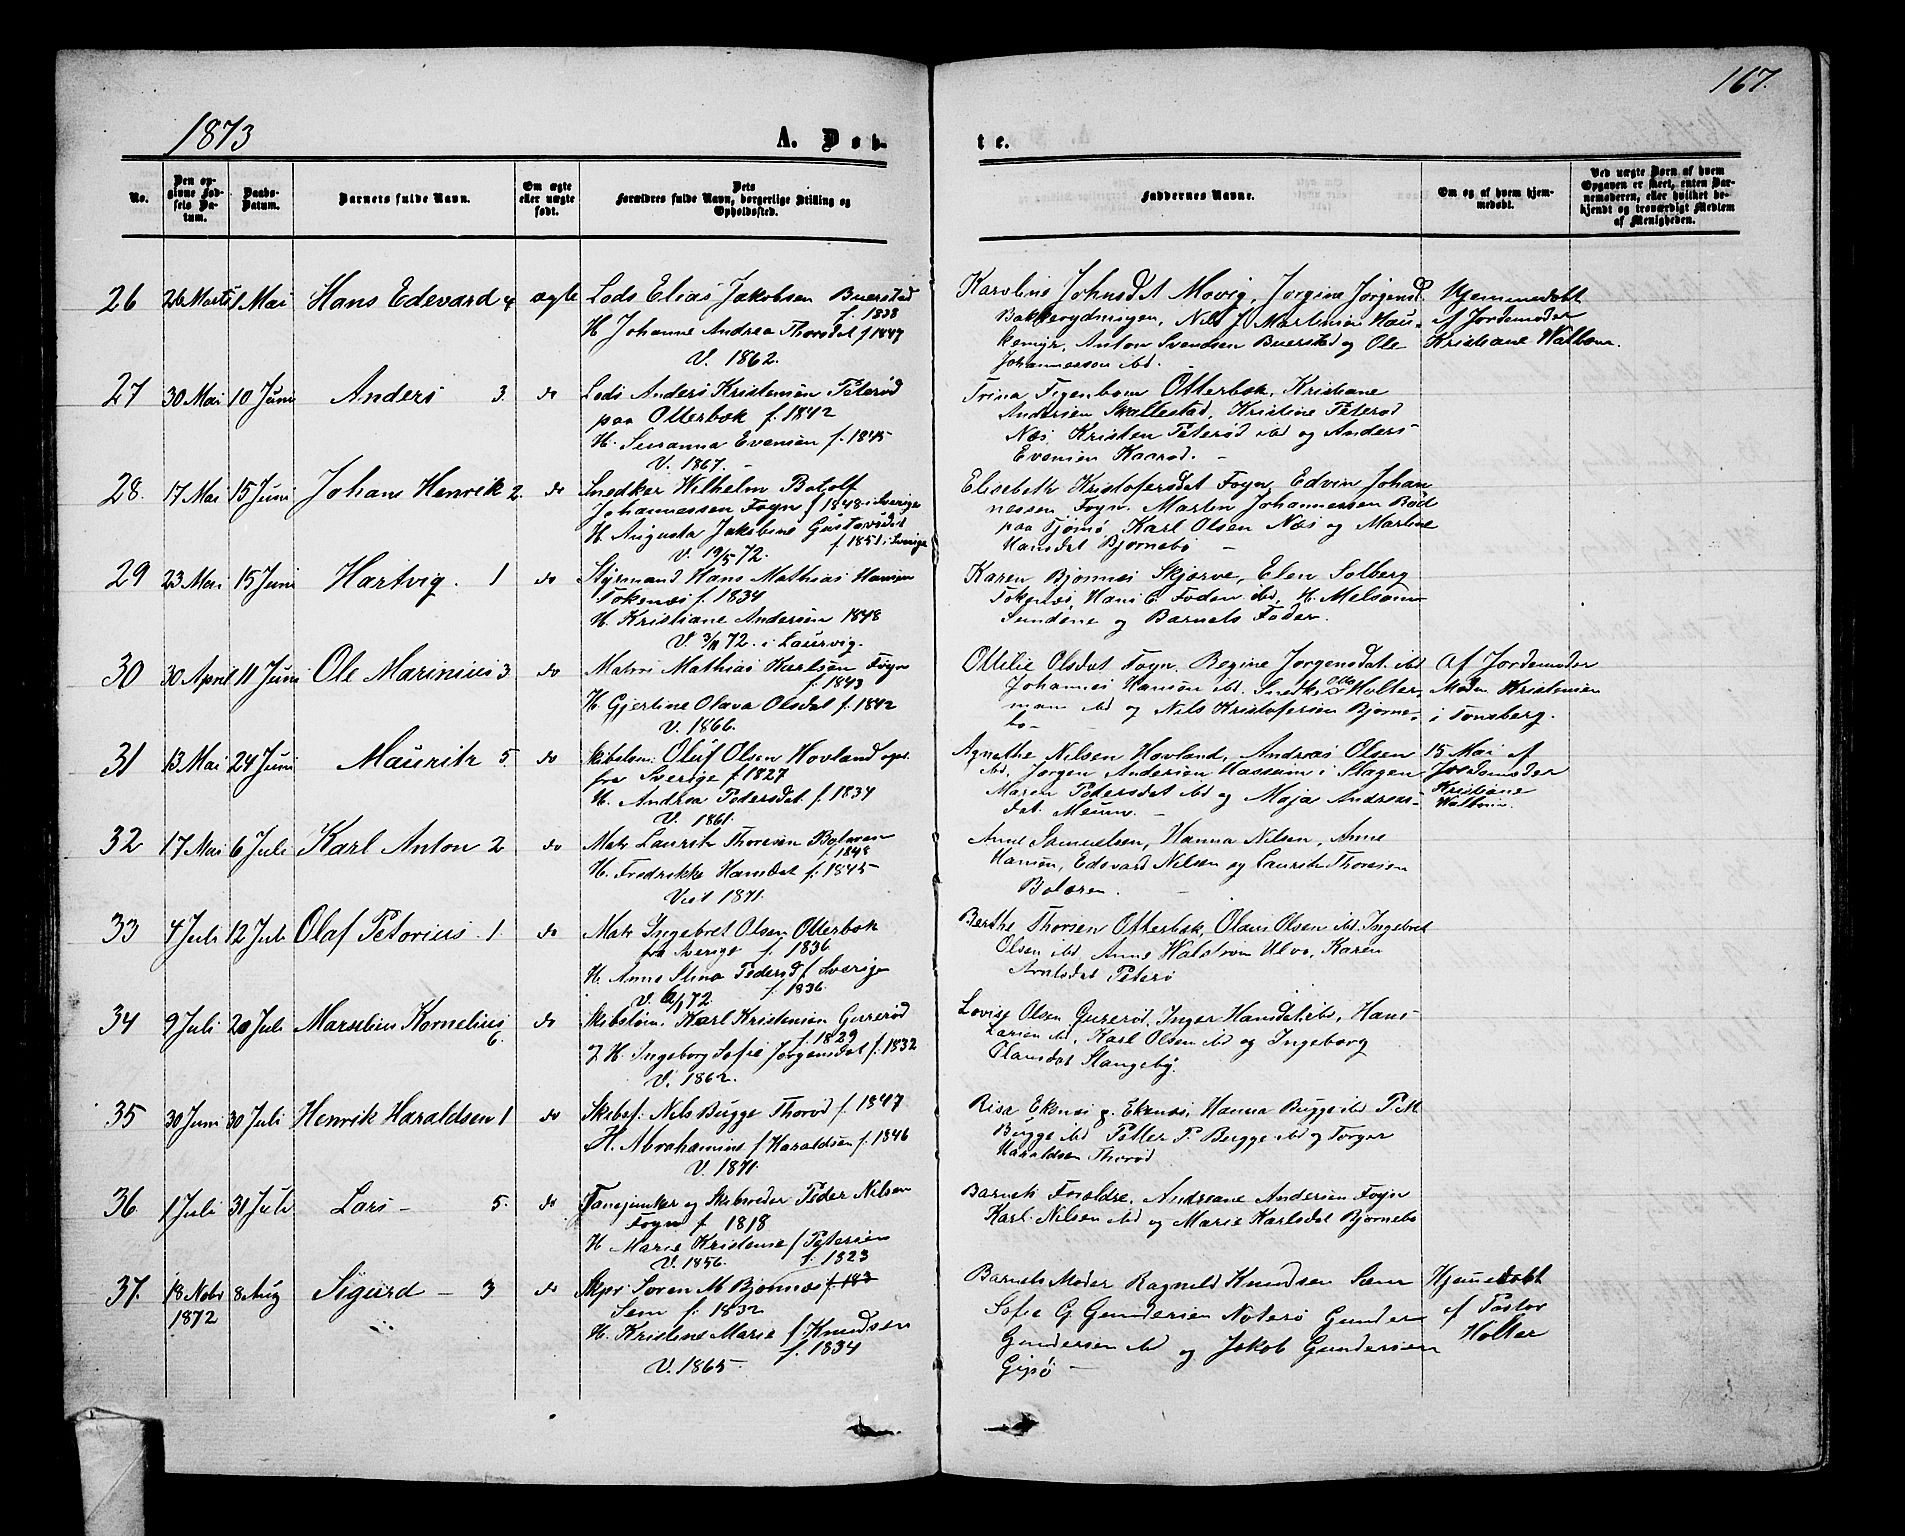 167.
1873
A. Døb-
te.
No.
Den op-
givne Fød-
sels Da-
tum.
Daabs-
Datum.
Barnets fulde Navn.
Om ægte
eller uægte
født.
Dets
Forældres fulde Navn, borgerlige Stilling og
Opholdsted.
Faddernes Navne.
Om og af hvem hjem-
medøbt.
Ved uægte Børn af hvem
Opgaven er skeet, enten Bar-
nemoderen, eller hvilket be-
kjendt og troværdigt Medlem
af Menigheden.
26 26 Marts 1 Mai Hans Edevard 4 ægte Lods Elias Jakobsen Buerstad
f. 1838
H. Johanne Andrea Thorsdat f 1847
V. 1862.
Karoline Johnsdat Movig, Jørgine Jørgensd.
Bakkerydningen, Nils J. Martinsen Hau-
kemyr, Anton Svendsen Buerstad og Ole
Johannessen ibd.
Hjemmedøbt
af Jordemoder
Kristiane Wallum.
27 30 Mai 10 Juni Anders 3. do Lods Anders Kristensen Peterød
paa Otterbæk f. 1842
H. Susanna Evensen f. 1845
V. 1867. –
Trina Figenbom Otterbæk, Kristiane
Andersen Skallestad, Kristine Peterød
Næs, Kristen Peterød ibd og Anders
Evensen Kaarød. –
28. 17 Mai 15 Juni Johans Henrik 2. do Snedker Wilhelm Botolf
Johannessen Føyn f 1848 i Sverige
H. Augusta Jakobine Gustavsdat
f. 1851 i Sverige
V. 19/5 72.
Elisabeth Kristofersdat Føyn, Edvin Johan
nessen Føyn. Martin Johannessen Bød
paa Tjømø, Karl Olsen Næs og Martine
Hansdat Bjørnebø –
29 23 Mai 15 Juni Hartvig. 1 do Styrmand Hans Mathias Hansen
Tokenæs f. 1834
H. Kristiane Andersen 1848
V. 3/11 72. i Laurvig.
Karen Bjønnes Skjærve, Elen Solberg
Tokenæs, Hans C. Foden ibd, H. Melsom
Sundene og Barnets Fader.
30 30 April 11 Juni Ole Marinius 3 do Matros Mathias Karlsen Føyn
f. 1843
H. Gjertine Olava Olsdat f. 1842
V. 1866.
Ottilie Olsdat Føyn. Regine Jørgensdat ibd
Johannes Hansen ibd. Snedk: Otto Holter,
man ibd og Nils Kristofersen Bjørne-
bø –
af Jordemoder
Maden Kristensen
i Tønsberg.
31 13 Mai 24 Juni Mauritz 5. do Skibstøm: Oluf Olsen Hovland opr.
fra Sverige f. 1827
H. Andrea Pedersdat f. 1834
V. 1861.
Agnethe Nilsen Hovland, Andreas Olsen
ibd, Jørgen Andersen Hassum i Slagen
Maren Pedersdat ibd og Maja Andreas-
dat Meum. –
15 Mai af
Jordemoder
Kristiane
Wallum.
32 17 Mai 6 Juli Karl Anton 2 do Matr Lauritz Thoresen Bolæren
f. 1848
H. Fredrikke Hansdat f. 1845
Viet 1871.
Anne Samuelsen, Hanna Nilsen, Anne
Hansen, Edevard Nilsen og Lauritz Thoresen
Bolæren.
33 4 Juli 12 Juli Olaf Petorius 1 do Matr Ingebret Olsen Otterbæk
fra Sverige f. 1836
H. Anne Stina Pedersd f Sverige
f. 1836
V. 6/1 72.
Berthe Thorsen Otterbæk, Olaus Olsen ibd Ingebret
Olsen ibd, Anne Walstrøm Ulvø, Karen
Arntsdat Peterø
34 9 Juli 20 Juli Marselius Kornelius 6. do Skibstøm: Karl Kristensen Gurrerød
f. 1829
H. Ingeborg Sofie Jørgensdat f. 1832
V. 1862.
Lovise Olsen Gurerød, Inger Hansdat ibd, Hans
Larsen ibd, Karl Olsen ibd og Ingeborg
Hansdat Slangeby.
35 30 Juni 30 Juli Henrik Haraldsen 1 do Skibsf. Nils Bugge Thorød f. 1847
H. Abrahamine f Haraldsen f. 1846
V. 1871.
Risa Ekenæs g. Ekenæs, Hanna Bugge ibd P. M
Bugge ibd Petter P. Bugge ibd og Torger
Haraldsen Thorød
36 1 Juli 31 Juli Lars – 5. do Fanejunker og Skibsreder Peder Nilsen
Føyn f. 1818
H. Marie Kristense f Petersen
V. 1856. f. 1823
Barnets Forældre, Andreane Andersen Føyn
Karl Nilsen ibd og Marie Karlsdat Bjørnebø
37. 18 Nobr
1872 8 Aug Sigurd – 3 do Skpr Søren M Bjønnæs f. 183
Sem f. 1832
H. Kristine Marie f Knudsen
f. 1834
V. 1865.
Barnets Moder Ragnild Knudsen Sem
Sofie G Gundersen Nøterø Gunder
Gundersen ibd og Jakob Gundersen
Gipø –
Hjemmedøbt
af Pastor
Holter